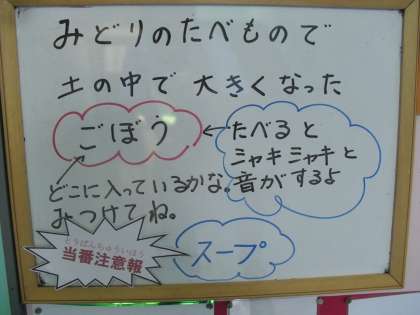 みどりのたべもので
土の中で 大きくなった
ごぼう
←たべると
ミャキミャキと
音がするよ
どこに入っているかな。
みつけてね。
とうばんちゅういほう
当番注意報
スープ